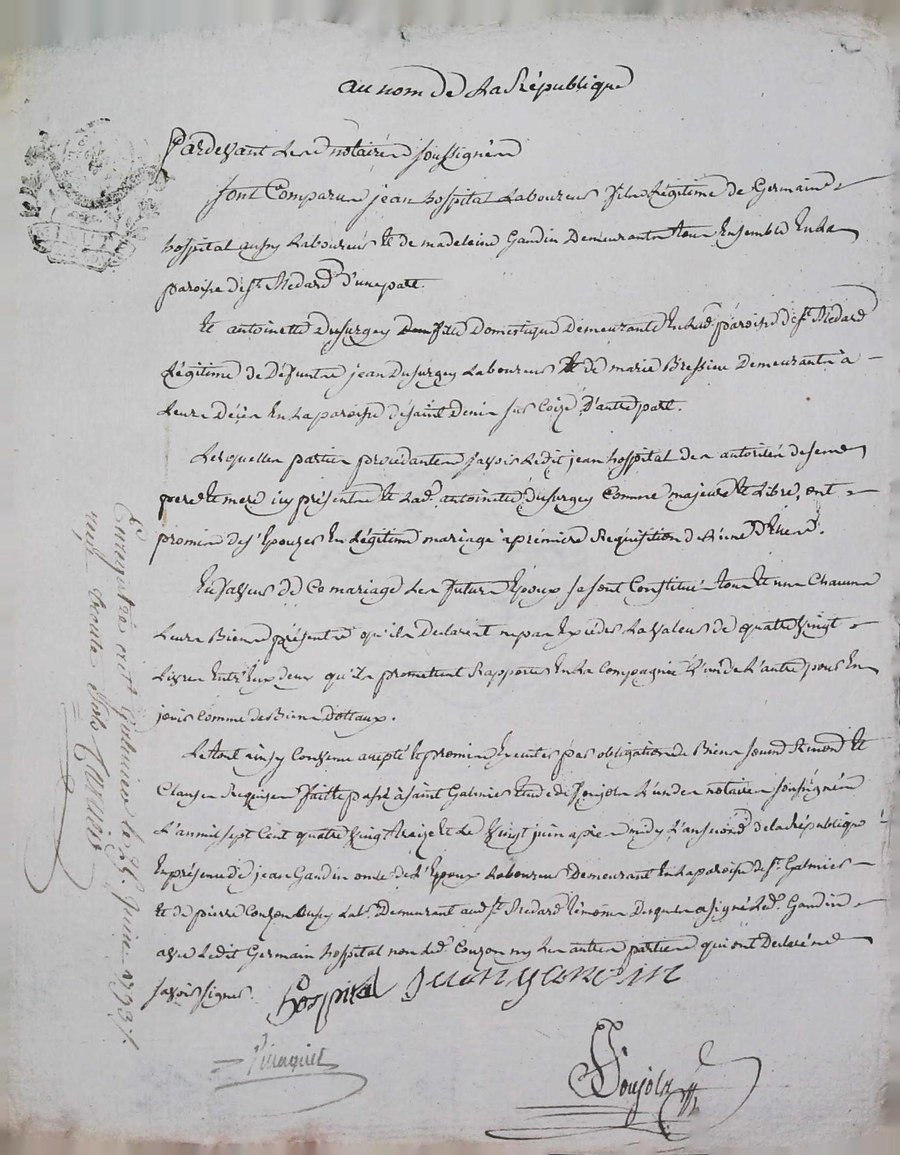 au nom de La République
Pardevant Les notaires soussignés
sont Comparus jean hospital Laboureur fils Légitime de Germain
hospital aussy Laboureur et de madelaine Gaudin Demeurants tous Ensemble En La
paroisse de st. Medard d'une part.
Et antoinette Dusurgey fille Domestique Demeurante En Lad. paroisse de st. Médard
Légitime de Défunts jean Dusurgey Laboureur et de marie Bressieu Demeurants a
Leurs Décès En La paroisse de saint Denis sur Coize D'autre part.
Lesquelles parties procédantes savoir Ledit jean hospital de L'autorité de ses
pere et mere icy présents Et Lad. antoinette Dusurgey Comme majeure et Libre, ont
promis de s'Epouser En Légitime mariage a première Requisition de L'un d'Eux.
En faveur de Ce mariage Les futurs Epoux se sont Constitué tous Et uns Chacuns
Leurs Biens présents qu'ils Declarent ne pas Exceder La valeur de quatre vingt
Livres Entr'Eux deux qu'ils promettent Rapporter En La Compagnie L'un de L'autre pour En
jouir Comme de Biens Dottaux.
Le tout ainsy Convenu accepté et promis Executer par obligation de Biens
Clauses Requises fait et passé à saint Galmier Etude de Poujols L'un des notaires soussignés
L'an mil sept Cent quatre vingt traize et Le vingt juin apres midy L'an second de la République
En présence de jean Gaudin oncle de L'Epoux Laboureur Demeurant En La paroisse de st. Galmier
et de pierre Couzon aussy Lab. Demeurant aud. st. Medard témoins Desquels a signé Led. Gaudin
avec Ledit Germain hospital non Led. Couzon ny Les autres parties qui ont Déclaré ne
savoir signer.
hospital jean gaudin
Poujols
Enregistré à st. Galmier le juin 1793